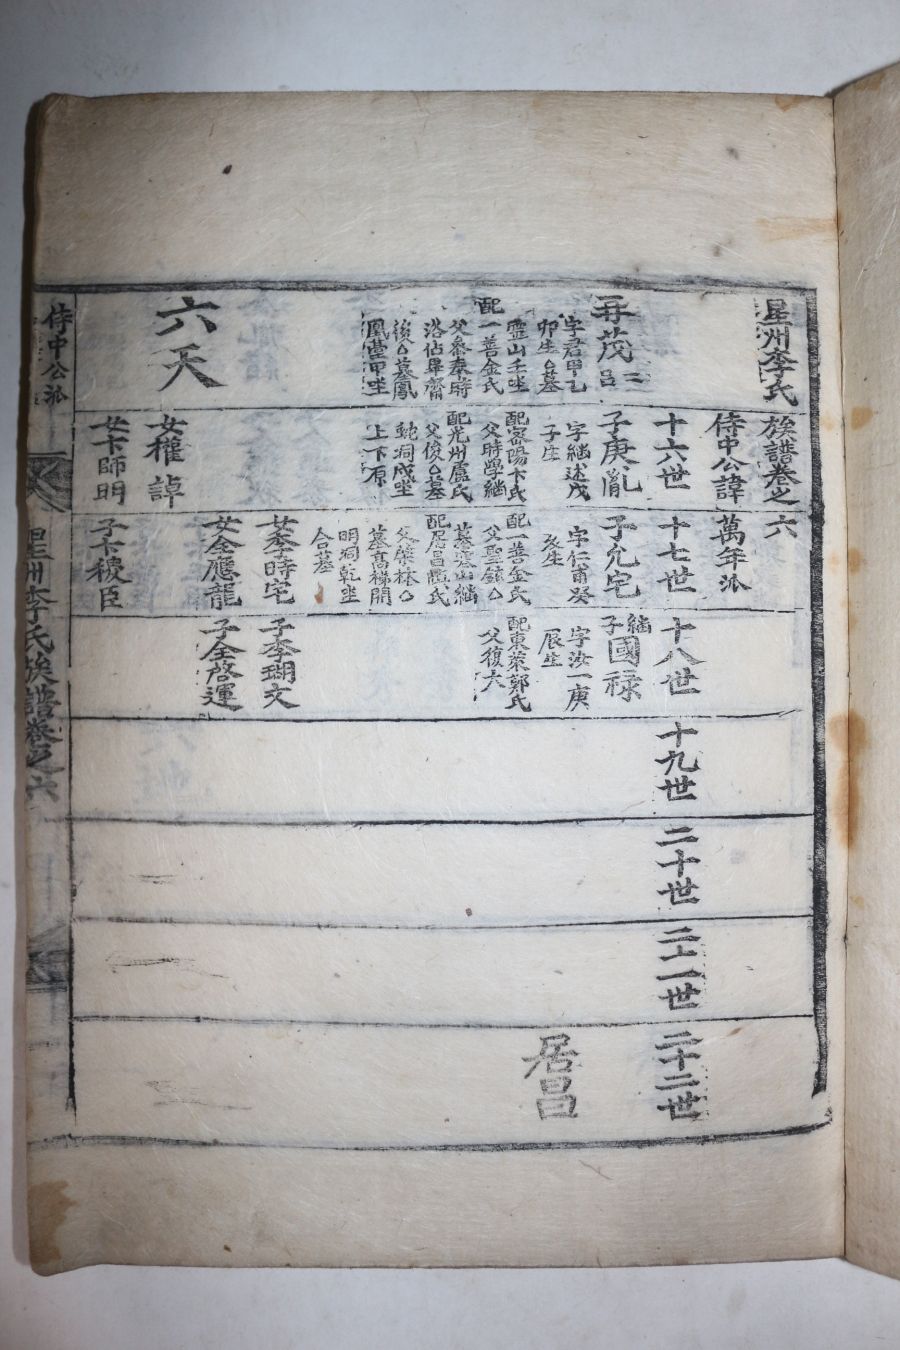 星州李氏族譜卷之六
侍中公諱萬年派
十六世
十七世
十八世
十九世
二十世
二十一世
二十二世
茂呂二
字君甲乙
卯生墓
靈山壬坐
配一善金氏
父參奉時
洛佔畢齋
後墓鳳
凰堂甲坐
六天
子庚胤
字繼述戊
子生
配密陽卞氏
父時學繼
配光州盧氏
父俊墓
乾洞戌坐
上下原
女權諄
女卞師明
子允宅
字仁甫癸
亥生
配一善金氏
父聖鎮
墓墓山繼
配居昌愼氏
墓高梯開
明洞乾坐
合墓
女李時宅
女全應龍
子卞稷臣
繼子國祿
字汝一庚
辰生
配東萊鄭氏
父復六
子李瑚文
子全啓運
居昌
侍中公派
星州李氏族譜卷之六